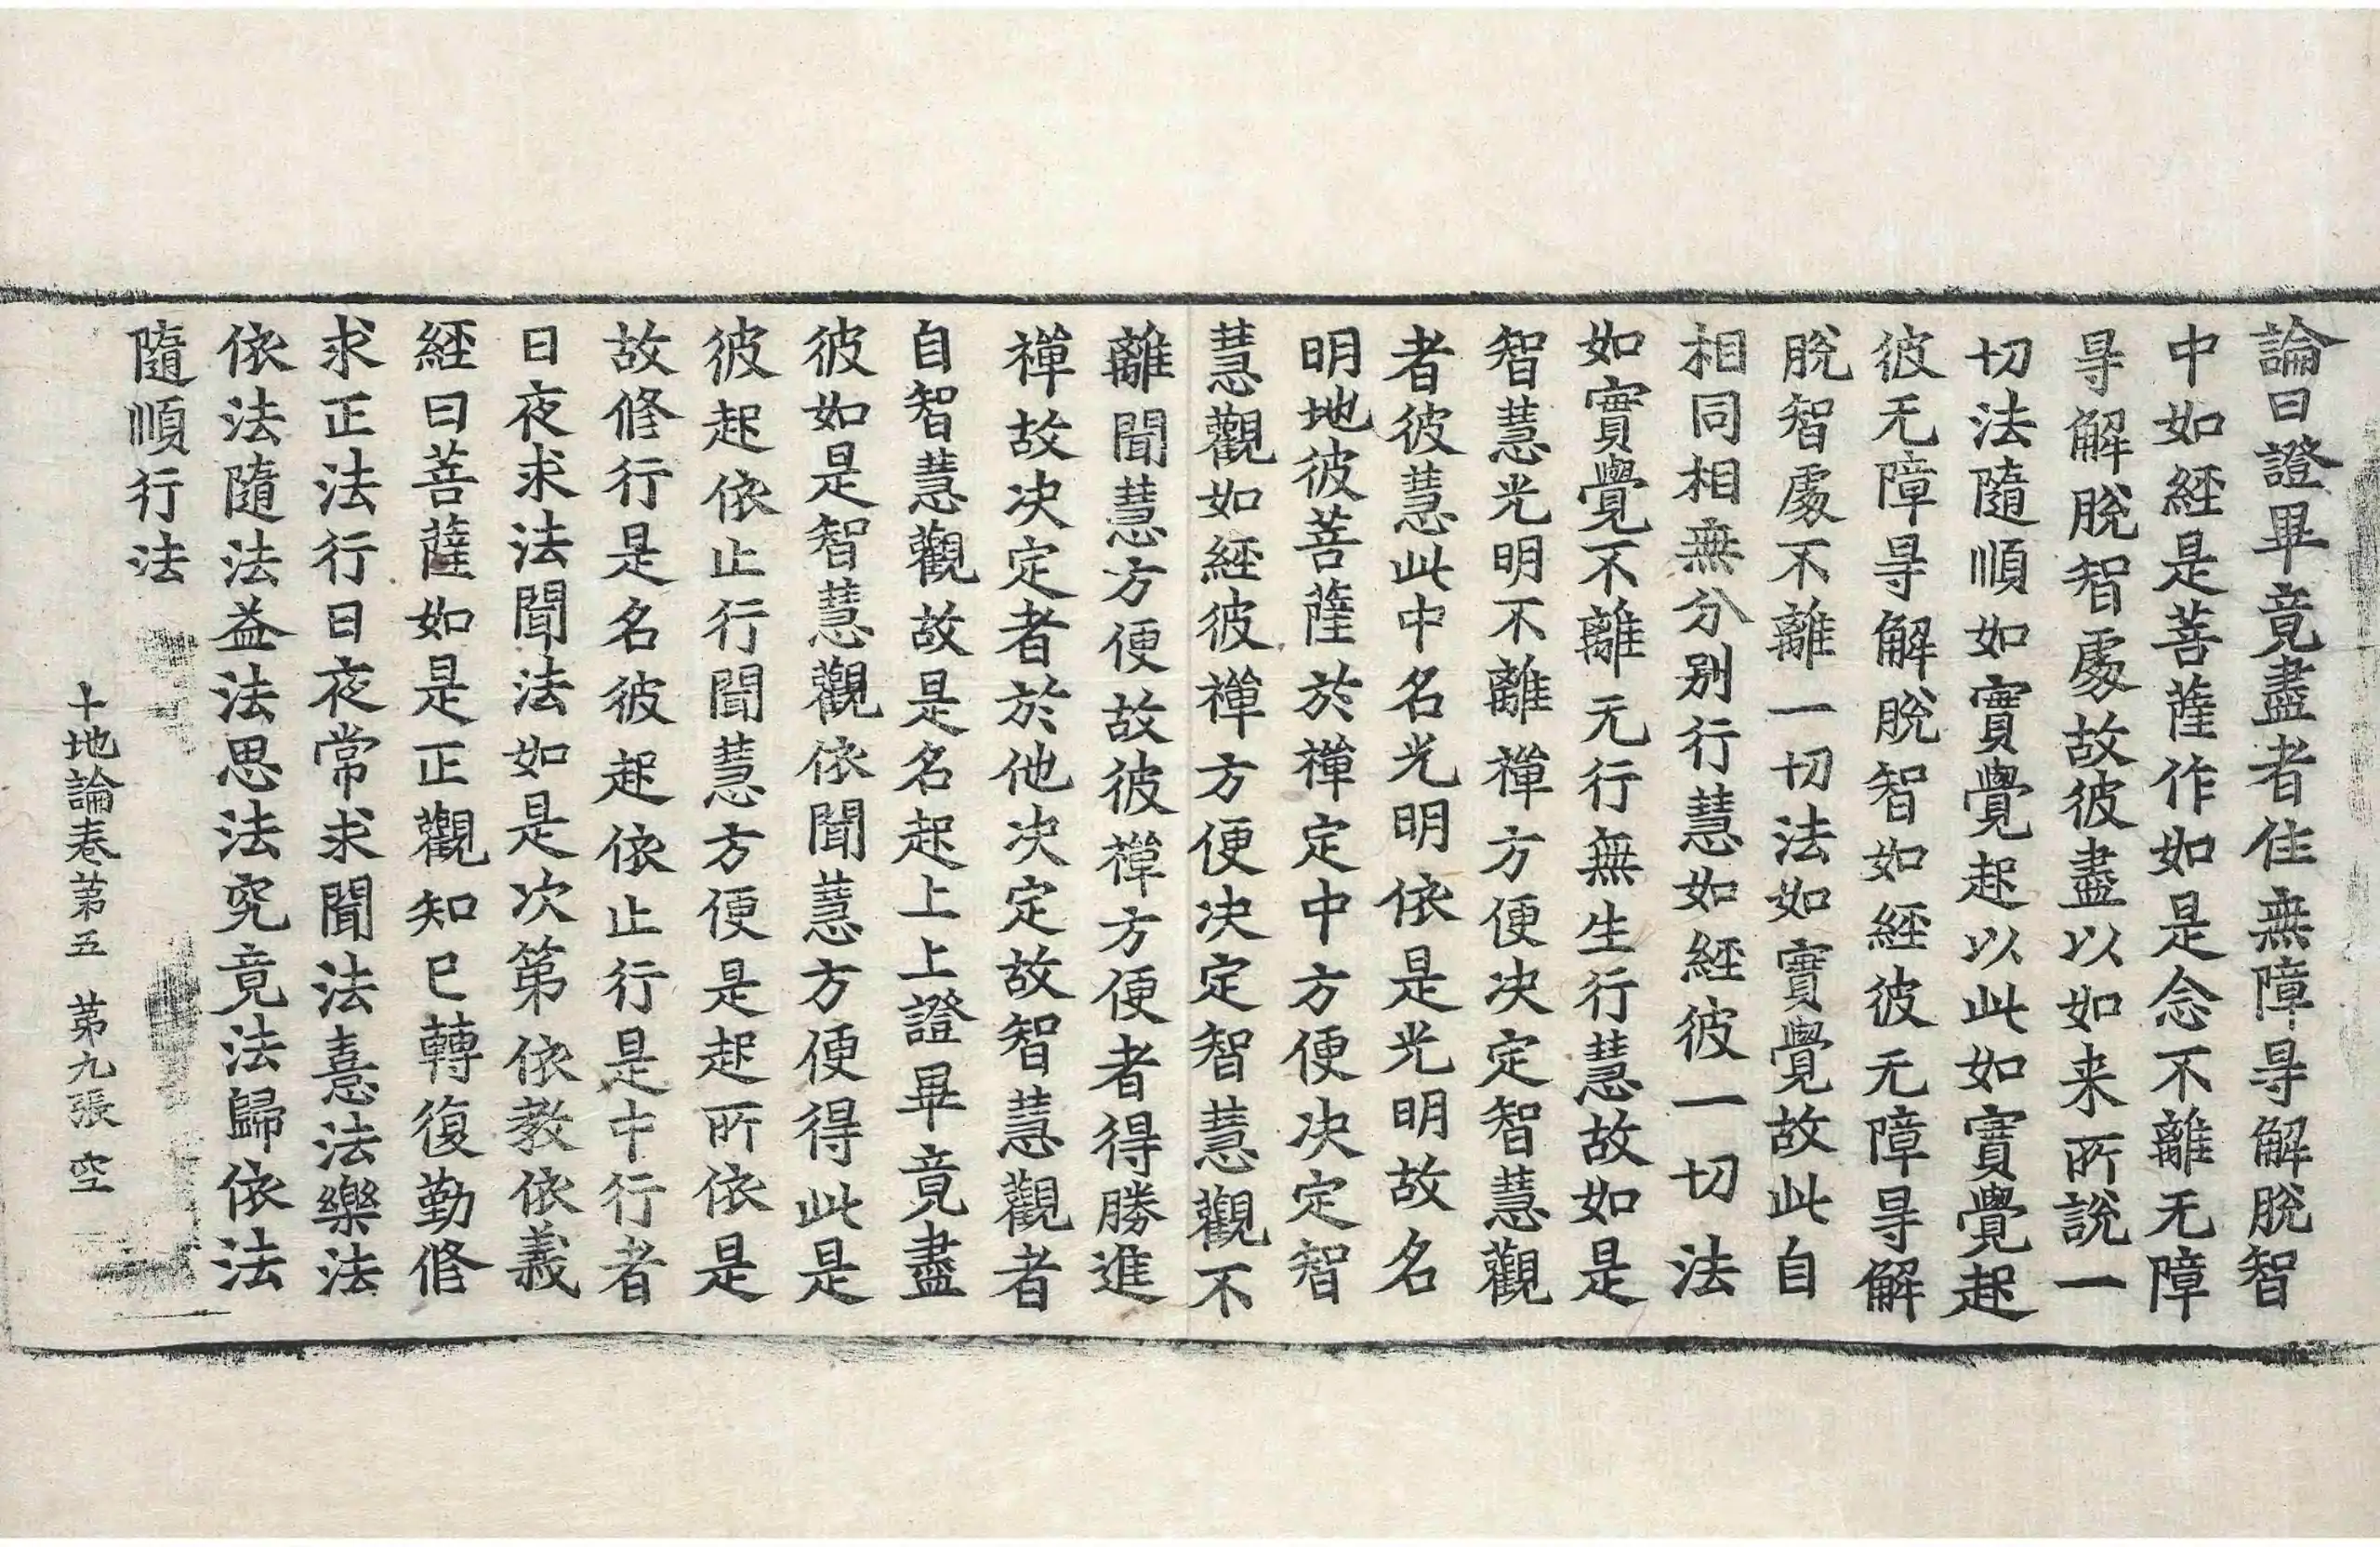 論曰證畢竟盡者住無障㝵解脫智
中如經是菩薩作如是念不離无障
㝵解脫智處故彼盡以如来所說一
切法隨順如實覺起以此如實覺起
彼无障㝵解脫智如經彼无障㝵解
脫智處不離一切法如實覺故此自
相同相無分別行慧如經彼一切法
如實覺不離无行無生行慧故如是
智慧光明不離禪方便决定智慧觀
者彼慧此中名光明依是光明故名
明地彼菩薩於禪定中方便决定智
慧觀如經彼禪方便决定智慧觀不
離聞慧方便故彼禪方便者得勝進
禪故决定者於他决定故智慧觀者
自智慧觀故是名起上上證畢竟盡
彼如是智慧觀依聞慧方便得此是
彼起依止行聞慧方便是起所依是
故修行是名彼起依止行是中行者
日夜求法聞法如是次第依教依義
經曰菩薩如是正觀知已轉復勤修
求正法行日夜常求聞法憙法樂法
依法隨法益法思法究竟法歸依法
隨順行法
十地論卷第五 第九張 空